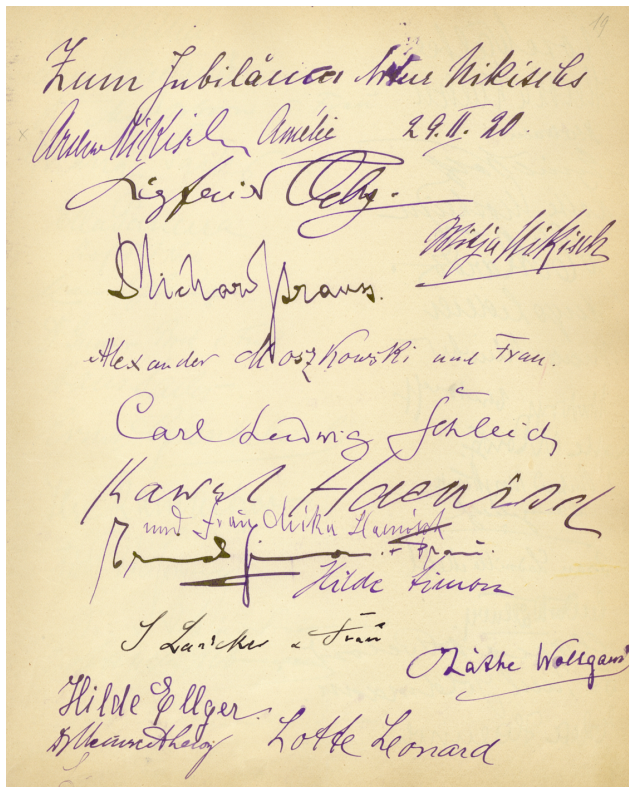 19
Zum Jubiläum Artur Nikischs
Arthur Nikisch Amélie 29.II.20.
Siegfried Ochs.
Mitja Nikisch
Richard Strauss.
Alexander Moszkowski und Frau.
Carl Ludwig Schleich
Haenisch
und Frau Haenisch
+ Frau.
Hilde Simon
Frau
Käthe
Hilde Ellger.
Lotte Leonard